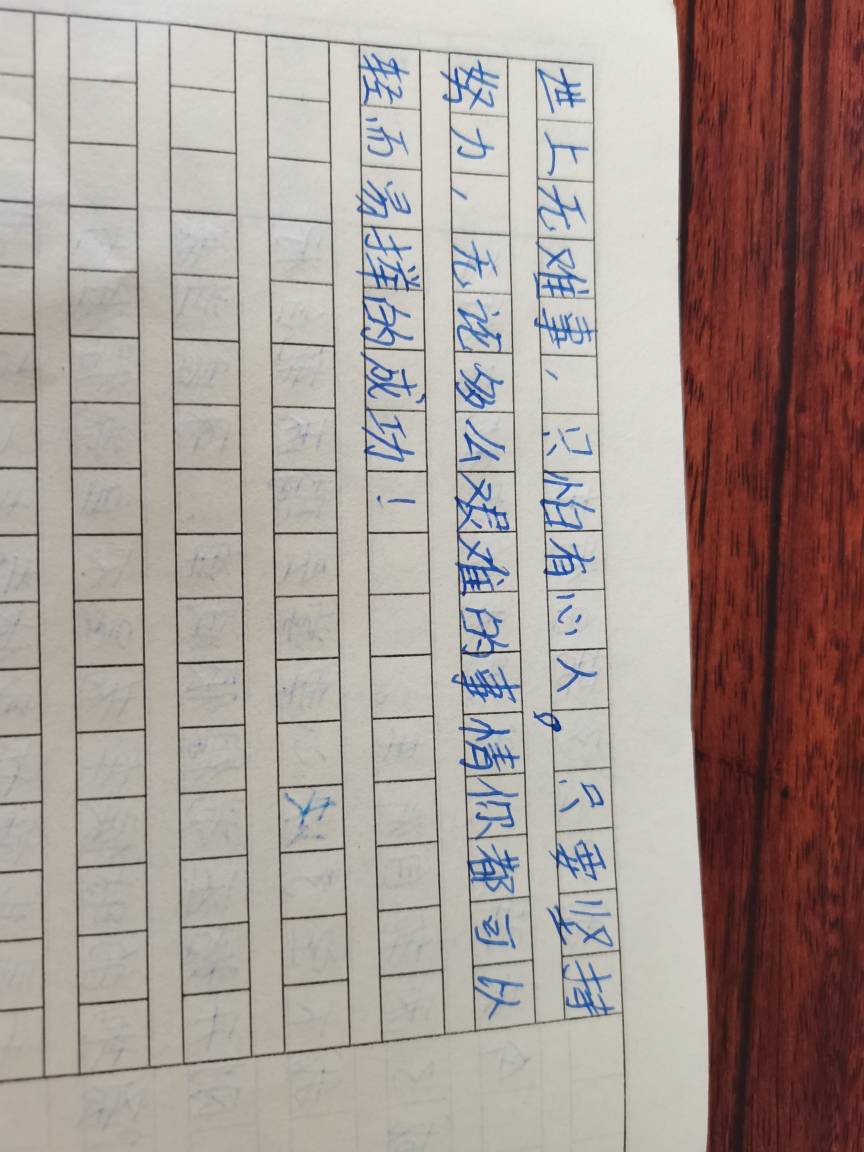 世上无难事，只怕有心人，只要坚持
努力，无论多么艰难的事情你都可以
轻而易择的成功！